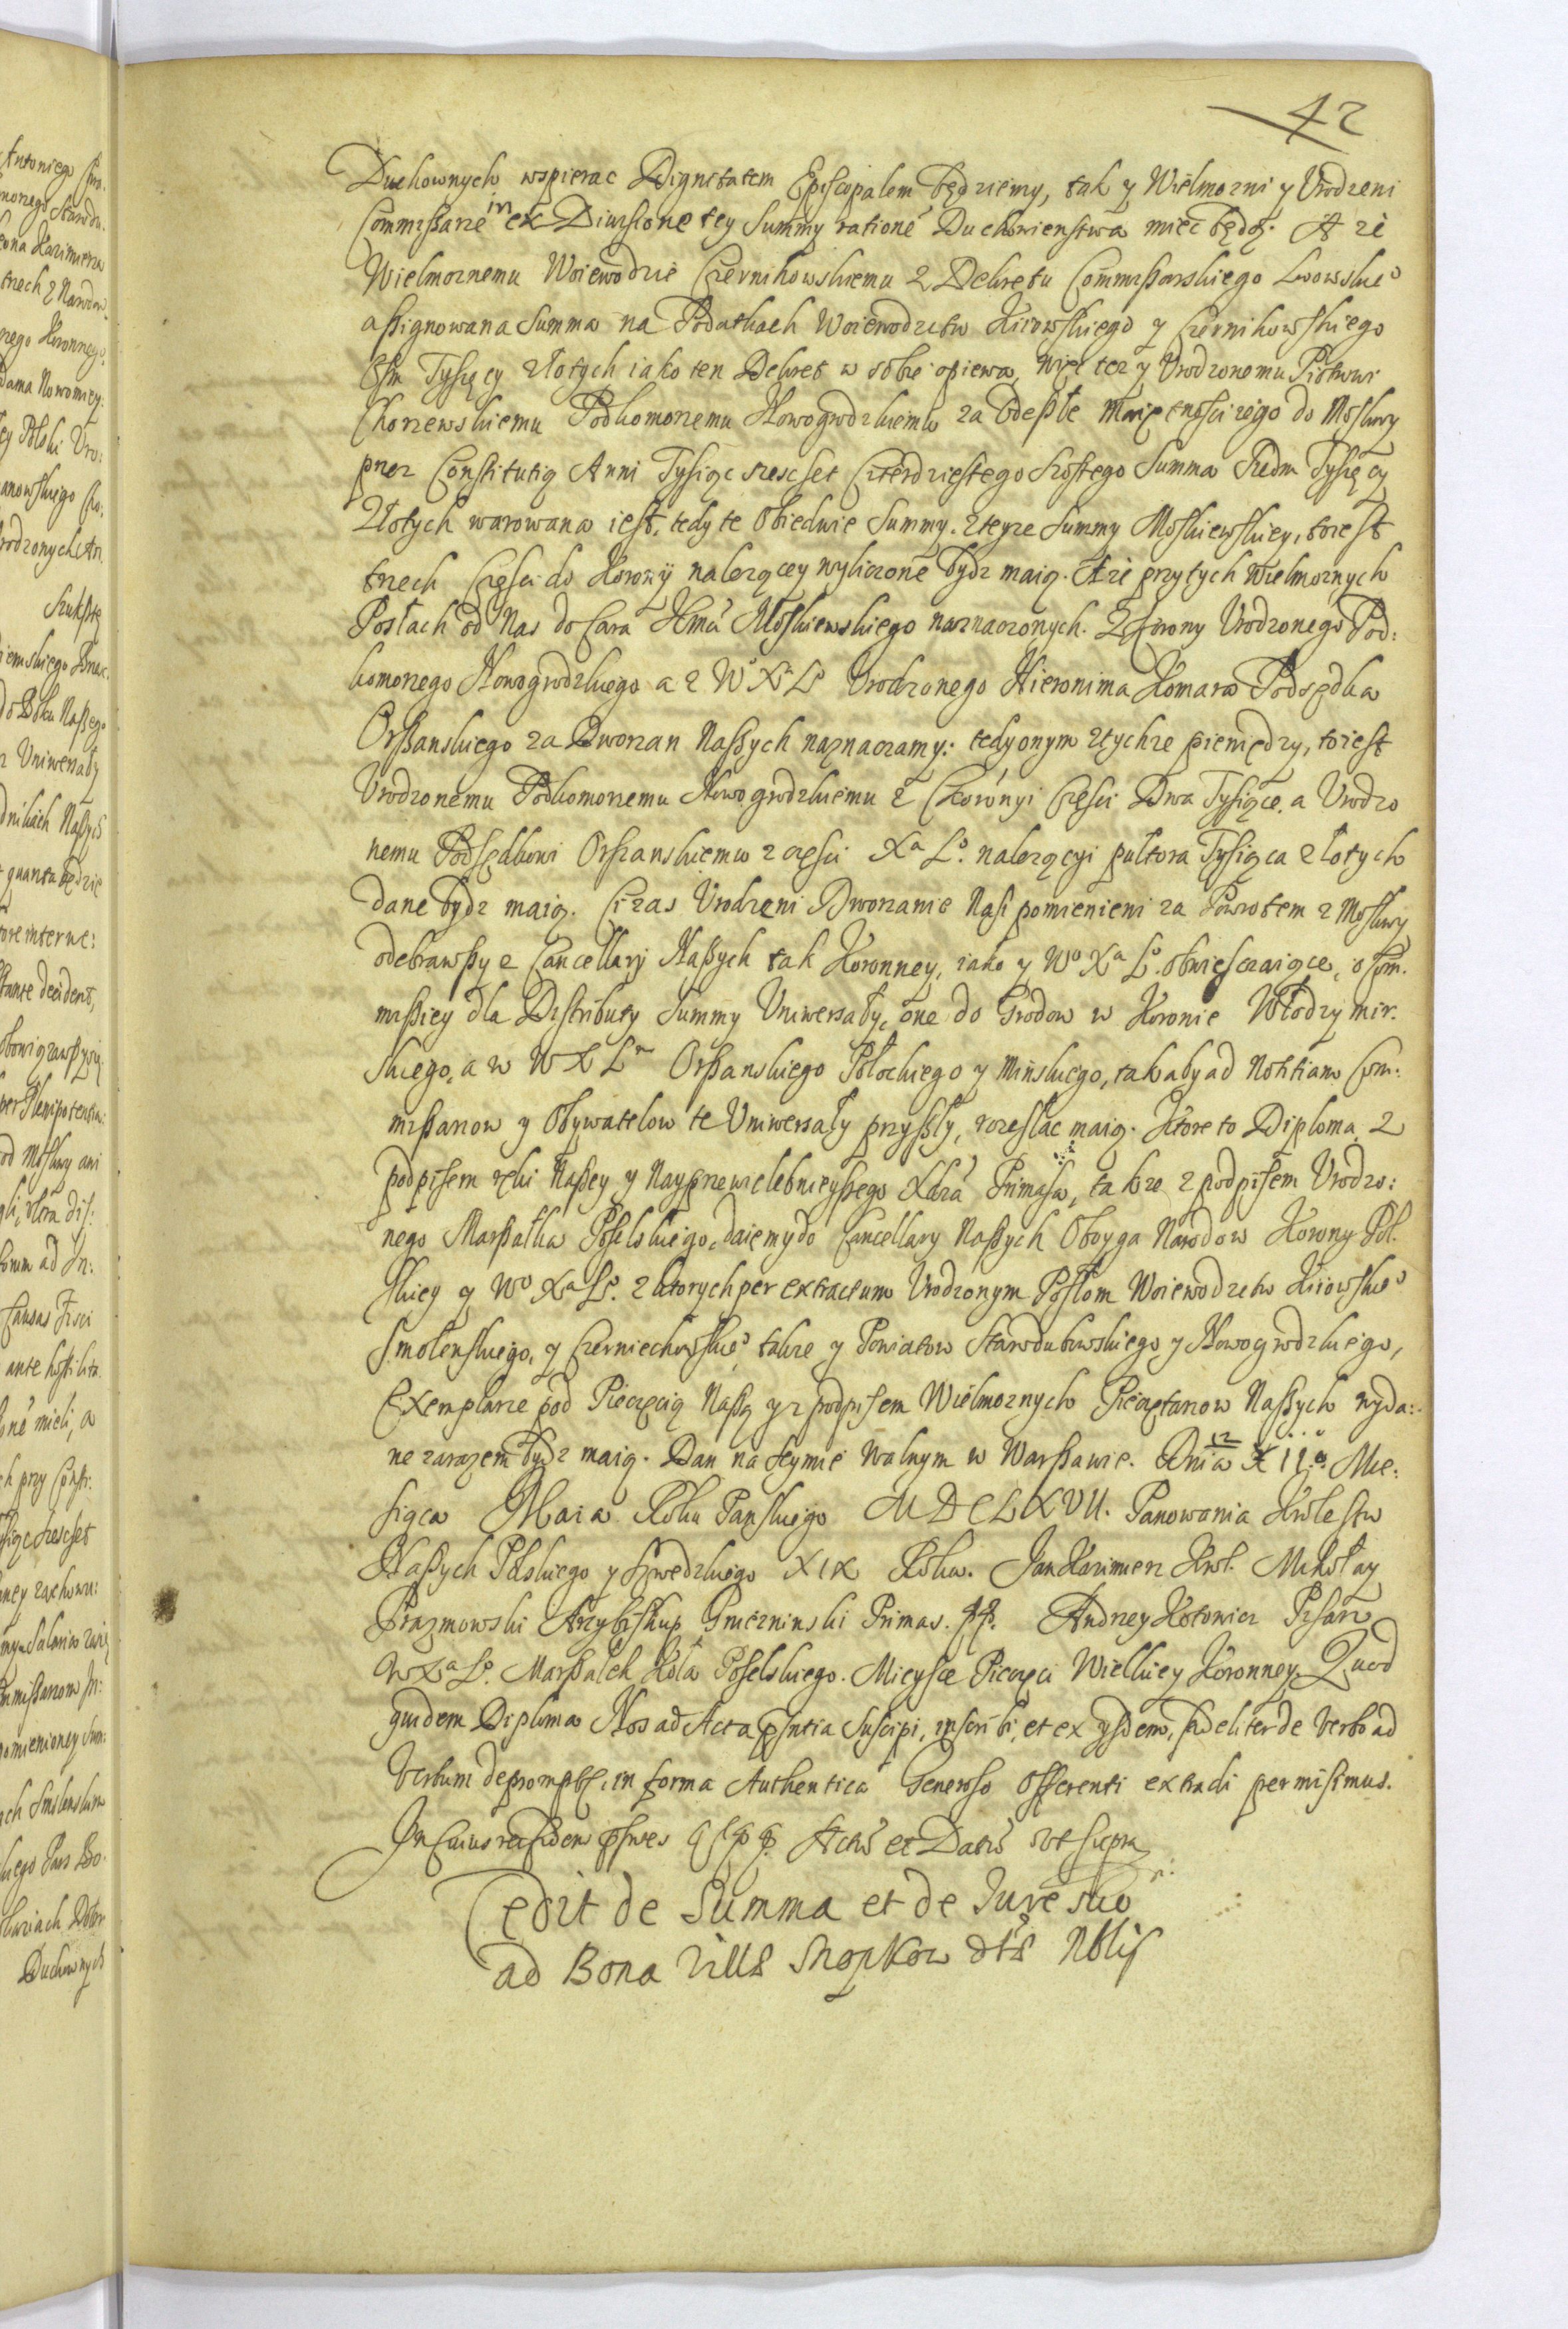 42
Duchownych wspierac Dignitatem Episcopalem będziemy, tak y Wielmozni y Vrodzeni
Commissarze in ex Diuisione tey Summy rationē Duchowienstwa miec będą. A ze
Wielmoznemu Woiewodzie Czernihowskiemu z Dekretu Commissarskiego Lwowskieo
assignowana Summa na Podatkach Woiewodztw Kiiowskiego y Czernihowskiego
Ośm Tysięcy złotych iako ten Dekret w sobie opiewa, więc tez y Vrodzonemu Piotrowi
Podkomorzemu Nowogrodzkiemu za Odeszłe Maiętnosci iego do Moskwy
przez Constitutią Anni Tysiąc szescset Czterdziestego Szostego Summa Siedm Tysięcy
Złotych warowana iest, tedy te Obiedwie Summy. z teyze Summy Moskiewskiey, to iest
trzech Części do Korony nalezącey wyliczone bydz maią. A ze przy tych Wielmoznych
Posłach od Nas do Cara Jemci Moskiewskiego naznaczonych. Z Korony Vrodzonego Pod:
komorzego Nowogrodzkiego a z Wo Xa Lo Vrodzonego Hieronima Komara Podsędka
Orszanskiego za Dworzan Naszych naznaczamy: tedy onym z tychze pieniędzy, to iest
Vrodzonemu Podkomorzemu Nowogrodzkiemu z Części Dwa Tysiące. a Vrodzo
nemu Podsędkowi Orszanskiemu z części Xa Lo. nalezącyi pultora Tysiąca złotych
dane bydz maią. Ciz as Vrodzeni Dworzanie Nasi pomienieni za Powrotem z Moskwy
odebrawszy z Cancellarij Naszych tak Koronney, iako y Wo Xa Lo. obwiesczaiące, o Com.
missiey dla Distributy Summy Vniwersały, one do Grodow w Koronie Włodzymir.
skiego, a w W X L Orszanskiego Połockiego y Minskiego, tak aby ad Notitiam Com:
missarzow y Obywatelow te Vniwersały przyszły, rozesłac maią. Ktore to Diploma z
podpisem ręki Naszey y Nayprzewielebnieyszego Xdza Primasa, takze z podpisem Vrodzo:
nego Marszałka Poselskiego, daiemy do Cancellary Naszych Oboyga Narodow Korony Pol.
skiey y Wo Xa Lo. z ktorych per extractum Vrodzonym Posłom Woiewodztw Kiiowskieo
Smolenskiego, y Czerniechowskieo takze y Powiatow Starodubowskiego y Nowogrodzkiego,
Exemplarze pod Pieczęcią Naszą y z podpisem Wielmoznych Pieczętarzow Naszych wyda:
ne zarazem bydz maią. Dan na Seymie Walnym w Warszawie. Dnia 12 XII. Mie:
siąca Maia Roku Panskiego MDCLXVII. Panowania Krolestw
Naszych Polskiego y Szwedzkiego XIX Roku. Jan Kazimierz Krol. Mikołay
Prazmowski Arcybiskup Gniezninski Primas. Andrzey Kotowicz Pisarz
W Xa Lo. Marszałek Koła Poselskiego. Mieysce Pieczęci Wielkiey Koronney. Quod
quidem Diploma Nos ad Acta pntia Suscipi, inscribi, et ex ysdem, fideliter de Verbo ad
Verbum depromptū, in forma Authentica Generoso Offerenti extradi permisimus.
In Cuius rei fidem pntes Actū et Datū vt supra
Cedit de Summa et de Jure suo
ad Bona Villæ Snopkow Nblis